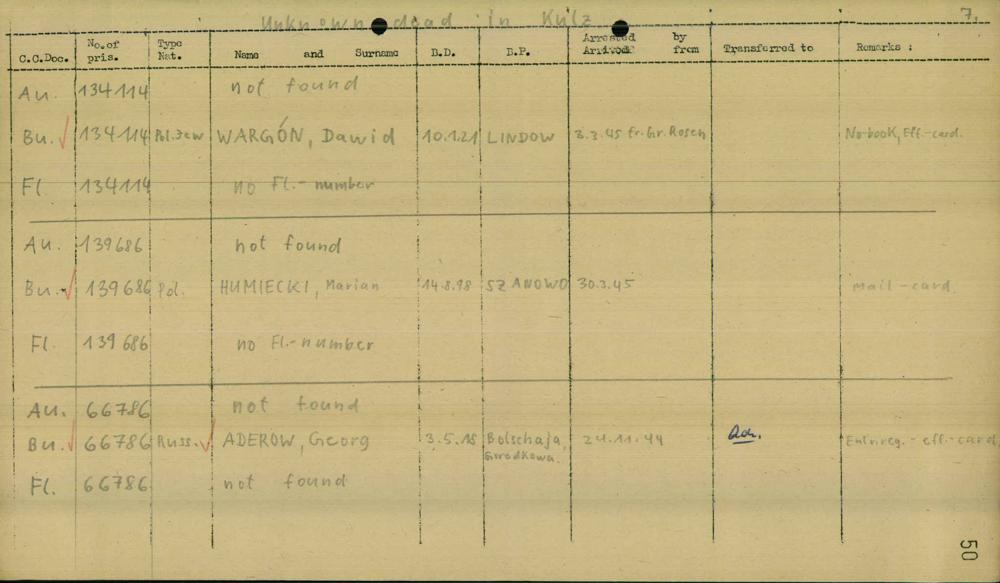 Unknown dead in Kulz
7.
C.C.Doc. No. of pris. Type Nat. Name and Surname B.D. B.P. Arrested Arrived by from Transferred to Remarks :
Au. 134114 not found
Bu. 134114 Pol.Jew WARGÓN, Dawid 10.1.21 LINDOW 3.3.45 fr. Gr. Rosen No-book, Eff.-card.
Fl. 134114 no Fl.-number
Au. 139686 not found
Bu. 139686 Pol. HUMIECKI, Marian 14.8.98 SZANOWO 30.3.45 mail-card.
Fl. 139686 no Fl.-number
Au. 66786 not found
Bu. 66786 Russ. ADEROW, Georg 3.5.18 Bolschaja, 24.11.44 - eff.-card
Gorodkowa.
Fl. 66786 not found
50